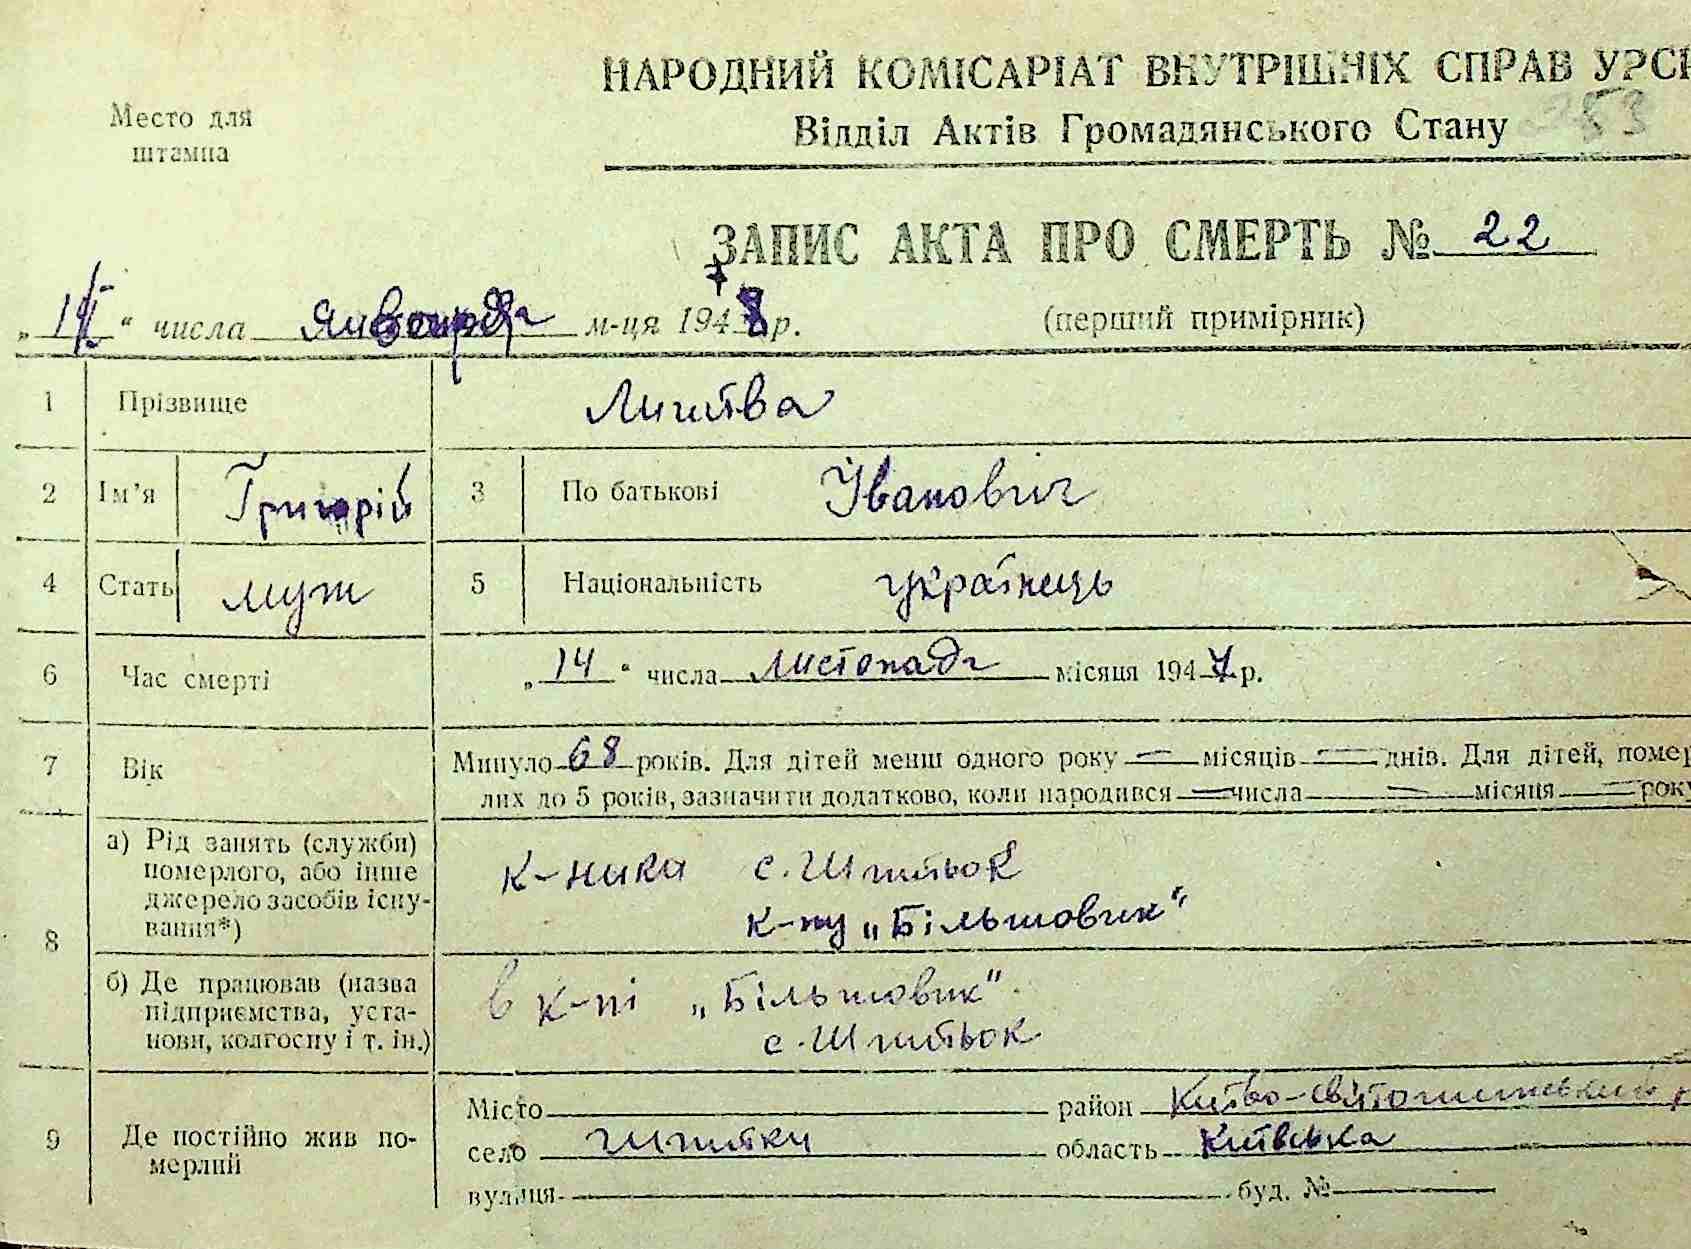 НАРОДНИЙ КОМІСАРІАТ ВНУТРІШНІХ СПРАВ УРСР
Відділ Актів Громадянського Стану
53
Место для
штампа
ЗАПИС АКТА ПРО СМЕРТЬ № 22
„ “ числа м-ця 1948 р.
(перший примірник)
1 Прізвище Литва
2 Ім’я Григорій 3 По батькові Іванович
4 Стать муж 5 Національність українець
6 Час смерті „ 14 “ числа листопада місяця 1947 р.
7 Вік Минуло 68 років. Для дітей менш одного року — місяців — днів. Для дітей, помер
лих до 5 років, зазначити додатково, коли народився — числа — місяця — року
8 а) Рід занять (служби) померлого, або інше джерело засобів існування*) к-ника с. Шпитьок
к-пу „Більшовик“
б) Де працював (назва підприємства, установи, колгоспу і т. ін.) в к-пі „Більшовик“
с. Шпитьок
9 Де постійно жив померлий
Місто район Києво-Святошинський
село Шпитки область Київська
вулиця буд. №